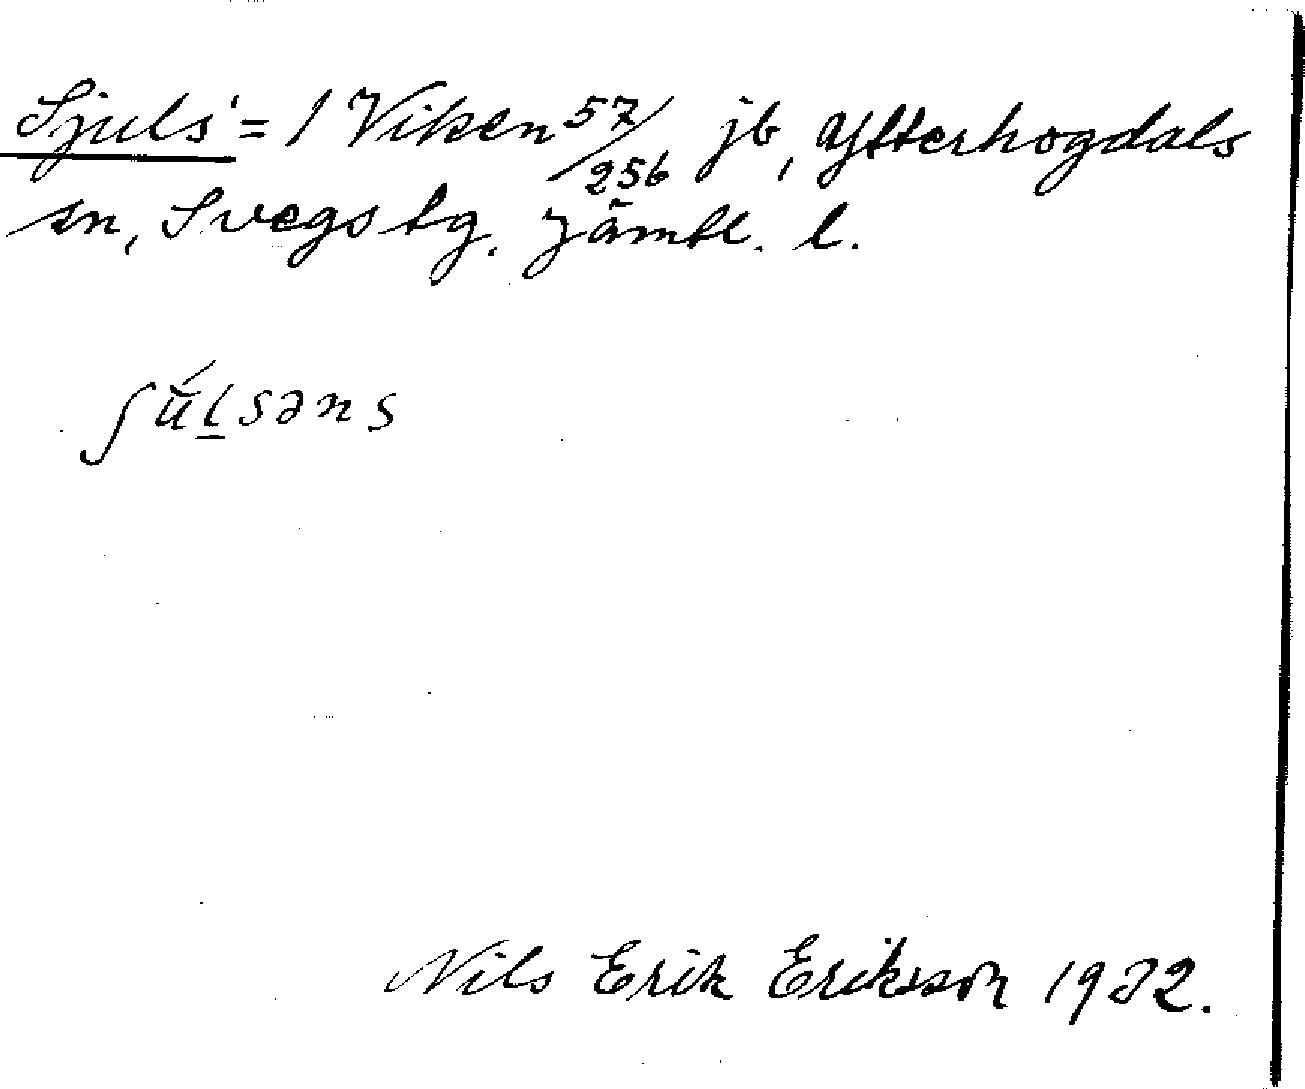 Sjuls' = 1 Viken 57/256 jb, Ytterhogdals
sn, Svegs tg. Jämtl. l.
ʃŭ́l̠səns
Nils Erik Eriksson 1932.